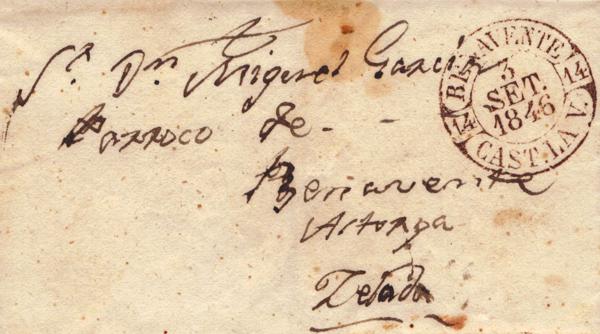 Sr. Dn. Miguel Garcia
Parroco de - -
Benavente
Astorga
BENAVENTE
3
SET.
1846
14
14
CAST.LA V.